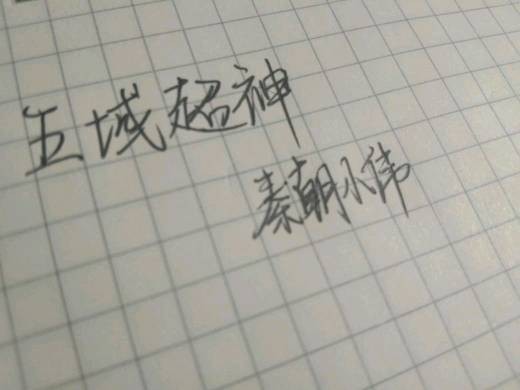 五域超神
秦朝小伟